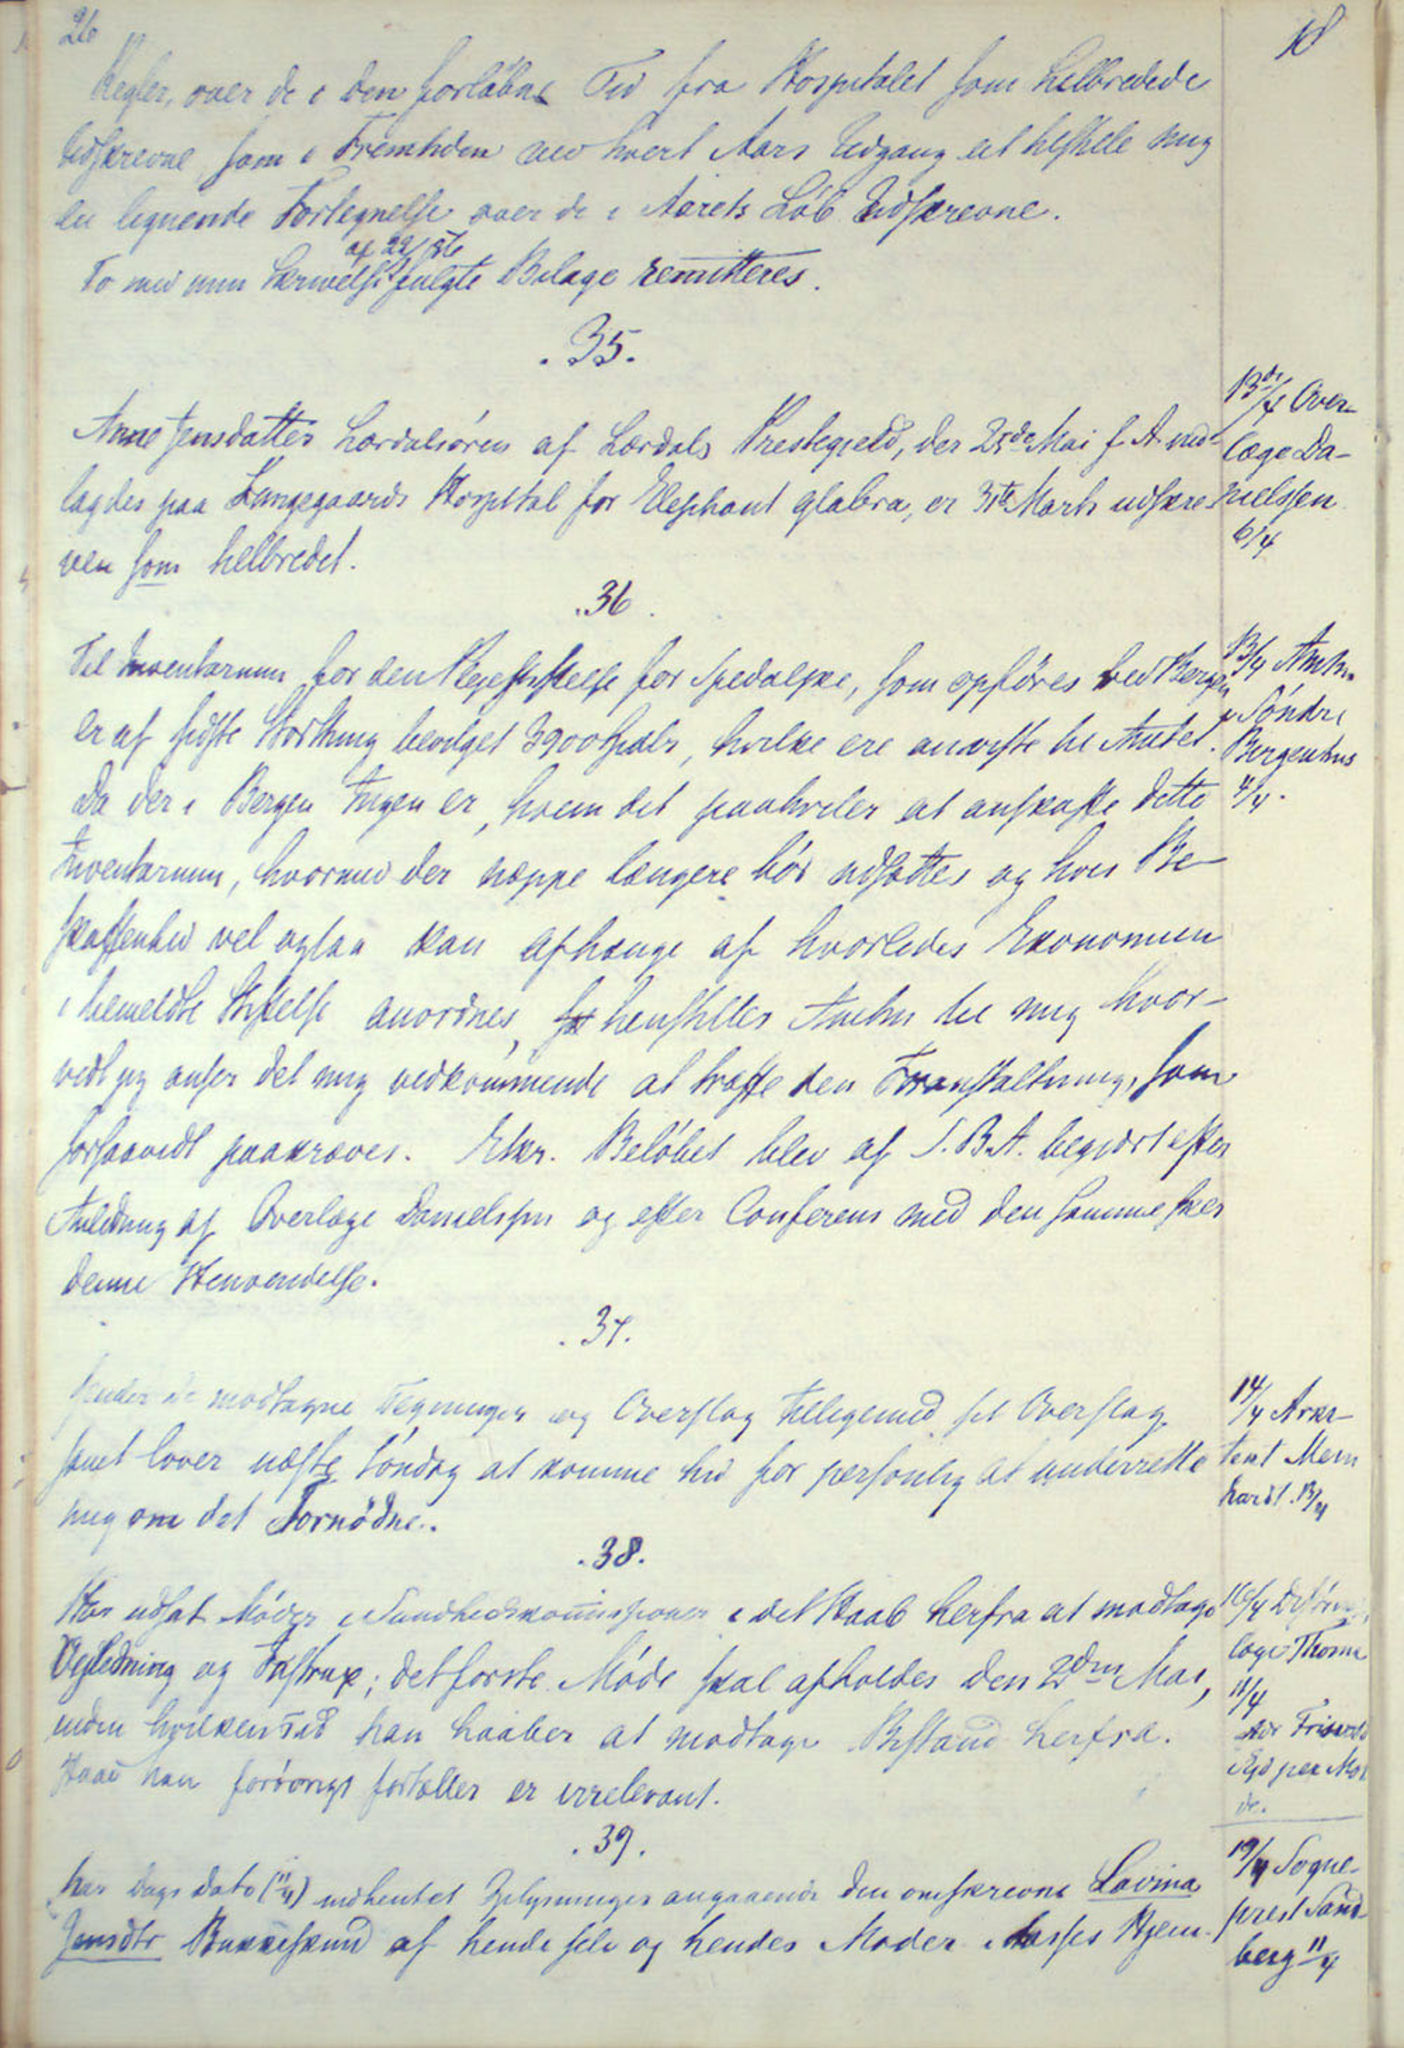 26
18
Regler, over de i den forløbne Tid fra Hospitalet som helbredede
udskrevne, som i Fremtiden ved hvert Aars Udgang at tilstille mig
en lignende Fortegnelse over de i Aarets Løb Udskrevne.
af 29/3 56
To med min Skrivelse fulgte Bilage remitteres.
. 35.
Anne Jensdatter Lærdalsøren af Lærdals Prestegjeld, der 25de Mai f. A. ind-
lagdes paa Lungegaards Hospital for Elephant glabra, er 31te Marts udskre-
ven som helbredet.
13de/4 Over-
læge Da-
nielssen
6/4
.36.
Til Inventarium for den Plejestiftelse for Spedalske, som opføres ved Bergen
er af sidste Storthing bevilget 3900 Spdlr, hvilke ere anviste til Amtet.
Da der i Bergen Ingen er, hvem det paahviler at anskaffe dette
Inventarium, hvormed der neppe længere bør udsættes og hvis Be-
skaffenhed vel ogsaa kan afhænge af hvorledes Ekonomien
i bemeldte Stiftelse anordnes, henstilles Amtm til mig hvor-
vidt jeg anser det mig vedkommende at træffe den Foranstaltning, som
forsaavidt paakræves. Beløbet blev af S. B. A. begjært efter
Anledning af Overlæge Danielssen og efter Conferens med den samme sker
denne Henvendelse.
13/4 Amtm.
i Søndre
Bergenhus
4/4.
. 37.
Sender de modtagne Tegninger og Overslag tilligemed sit Overslag
samt lover næste Søndag at komme hid for personlig at underrette
mig om det Fornødne.
14/4 Arki-
tekt Mein
hardt. 13/4
.38.
Har udsat Møder i Sundhedskommissionen i det Haab herfra at modtage
Vejledning og Instrux; det første Møde skal afholdes den 2den Mai,
inden hvilken Tid han haaber at modtage Bistand herfra.
Hvad han forøvrigt fortæller er irrelevant.
16/4 Distrikts
læge Thoma
11/4
.39.
har Dags Dato (11/4) indhentet Oplysninger angaaende den omskrevne Lavina
Jensdtr af hende selv og hendes Moder Hjem-
19/4 Sogne-
prest Sand-
berg 11/4